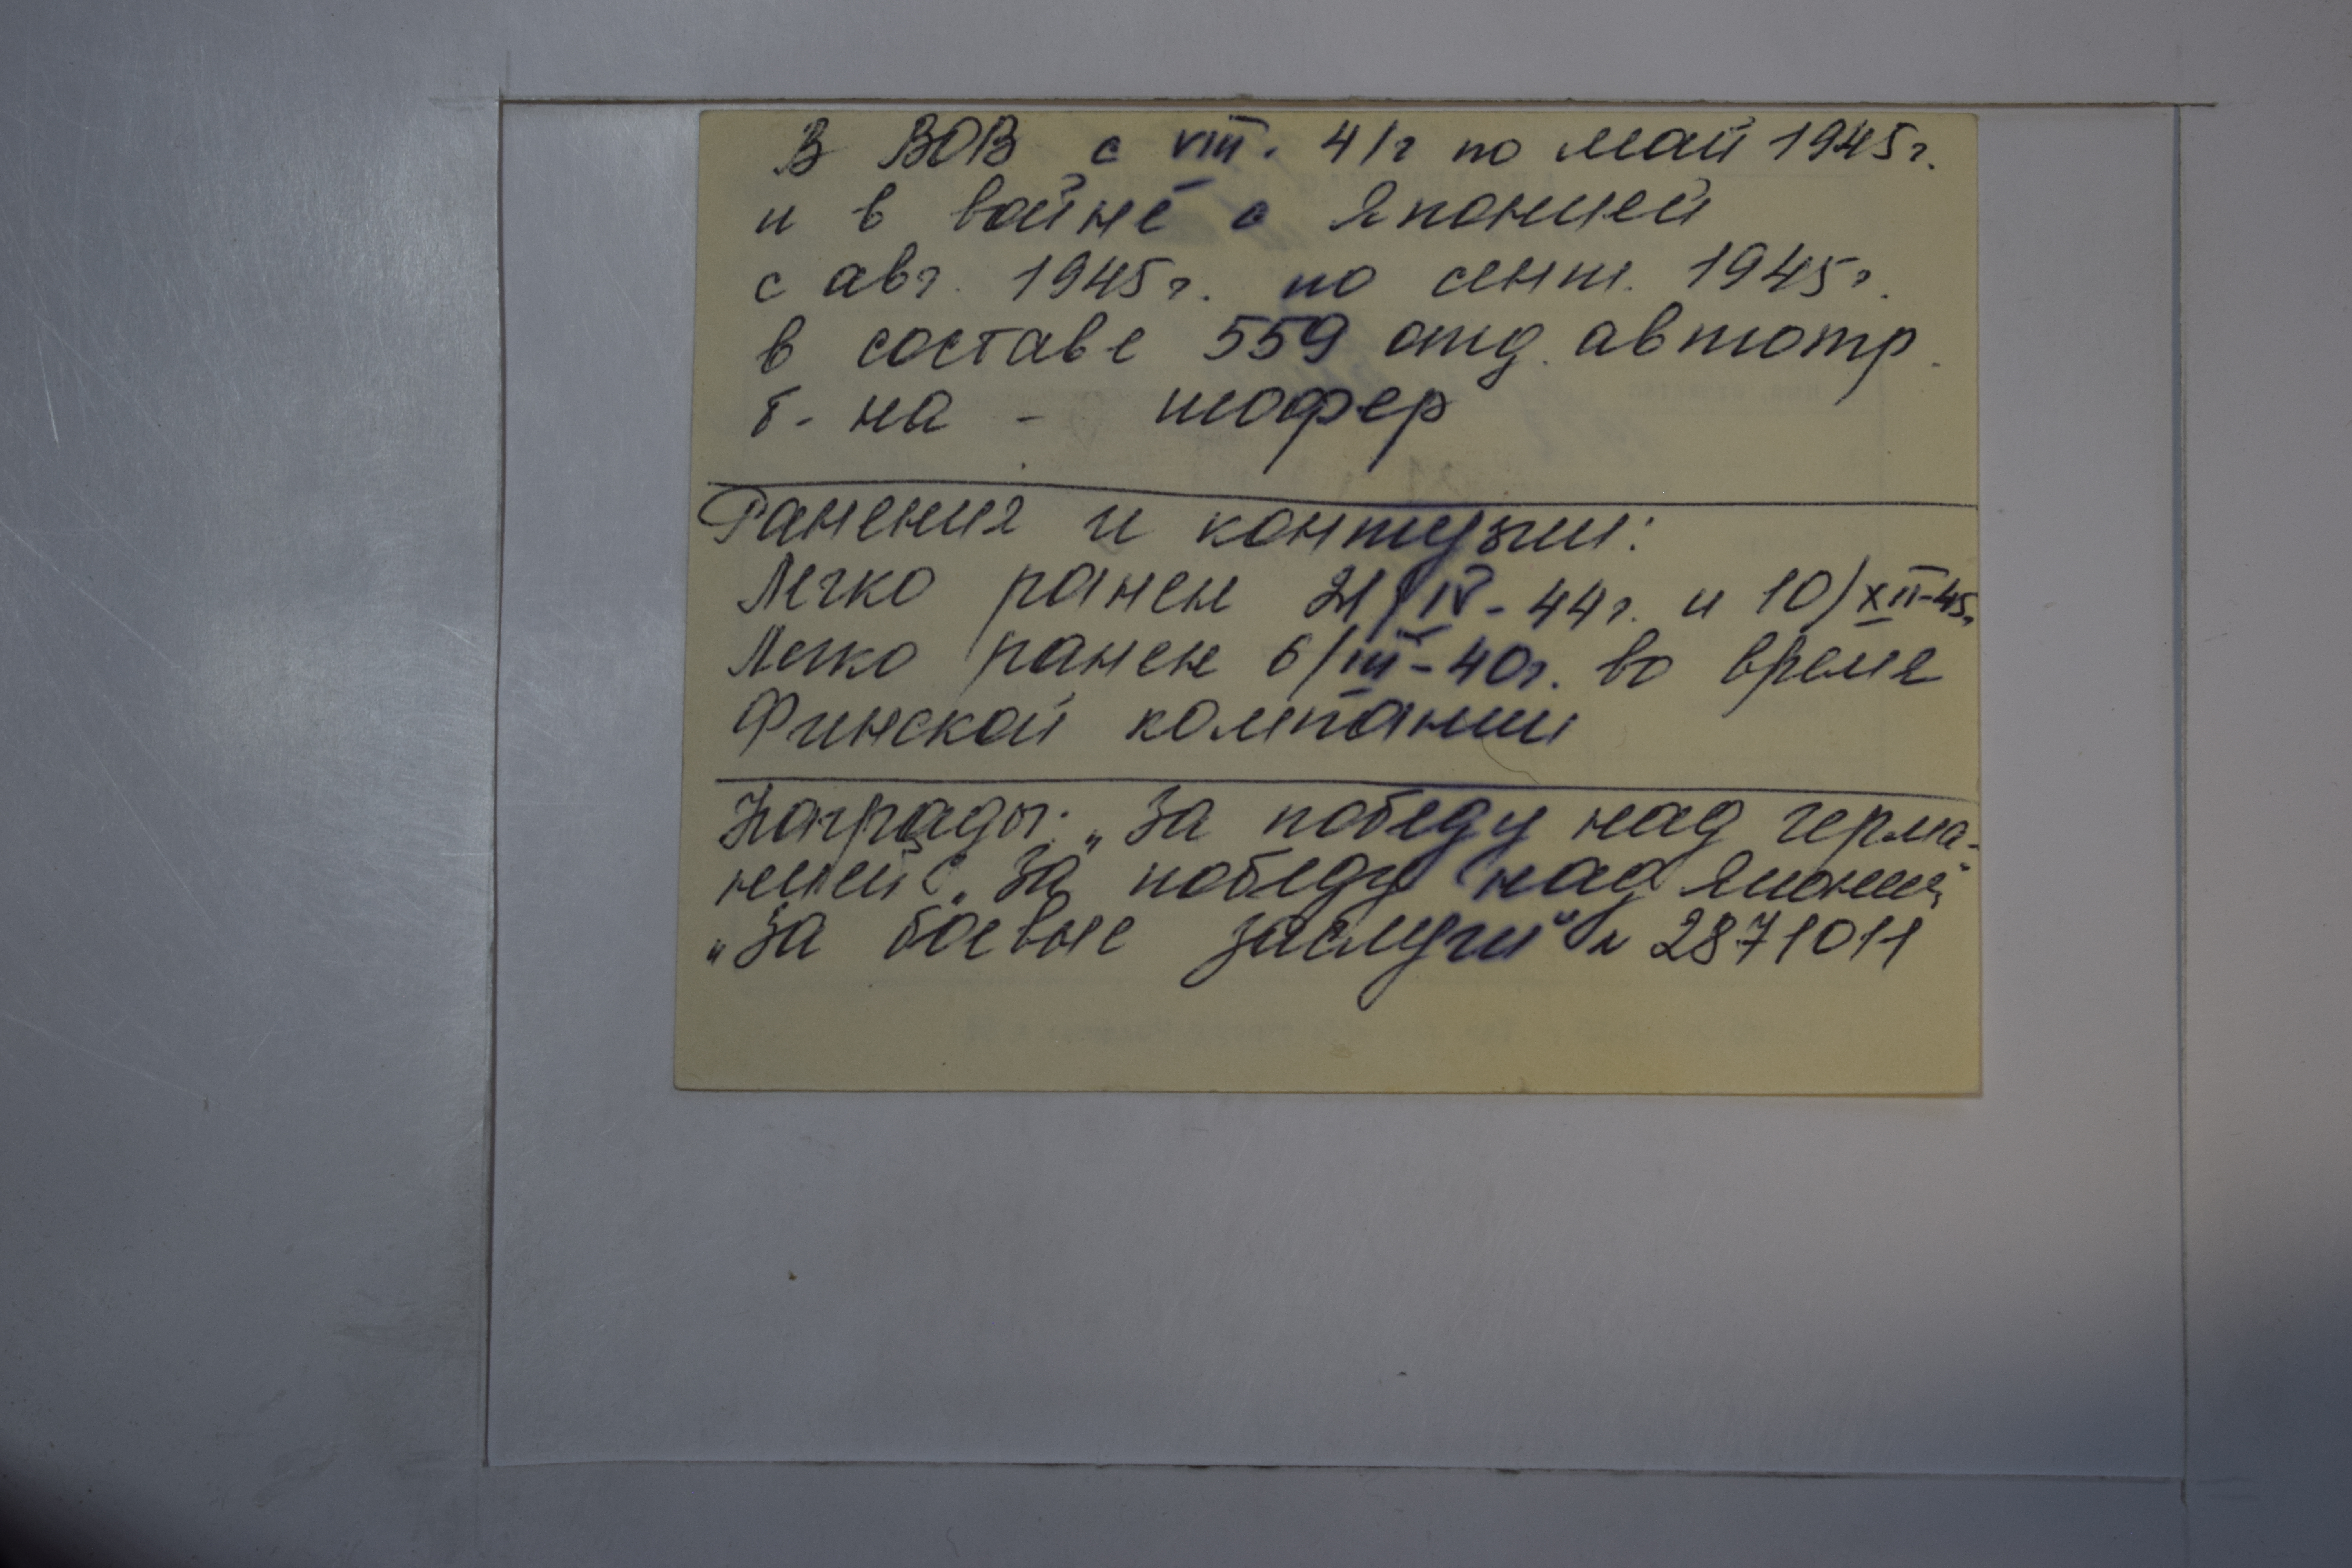 В ВОВ с VIII. 41г по май 1945г.
и в войне с Японией
с авг. 1945г. по сент. 1945г.
в составе 559 отд. автотр.
б-на - шофер
Ранения и контузии:
Легко ранен 21/IV-44г. и 10/XII-45г.
Легко ранен 6/III-40г. во время
Финской компании
Награды: „За победу над Герма-
нией“, „За победу над Японией“
„За боевые заслуги“ № 2871011